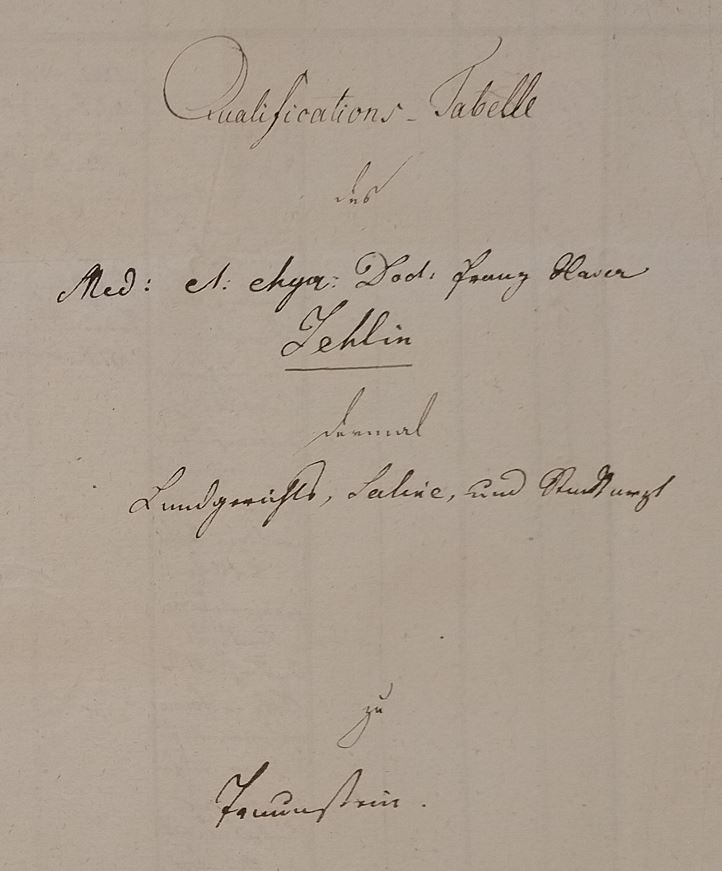 Qualifications-Tabelle
des
Med: et: chyr: Doct: Franz Xaver
Jehlin
dermal
Landgerichts, Saline, und Stadtarzt
zu
Traunstein.